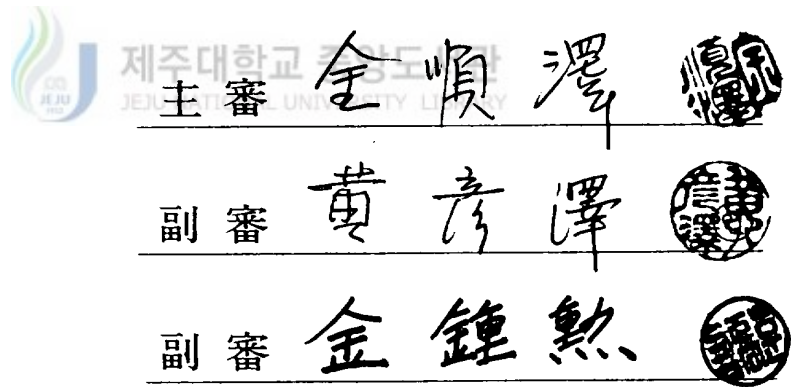 제주대학교 중앙도서관
JEJU NATIONAL UNIVERSITY LIBRARY
JEJU
1952
主審 金順澤
副審 黃彦澤
副審 金鍾勲